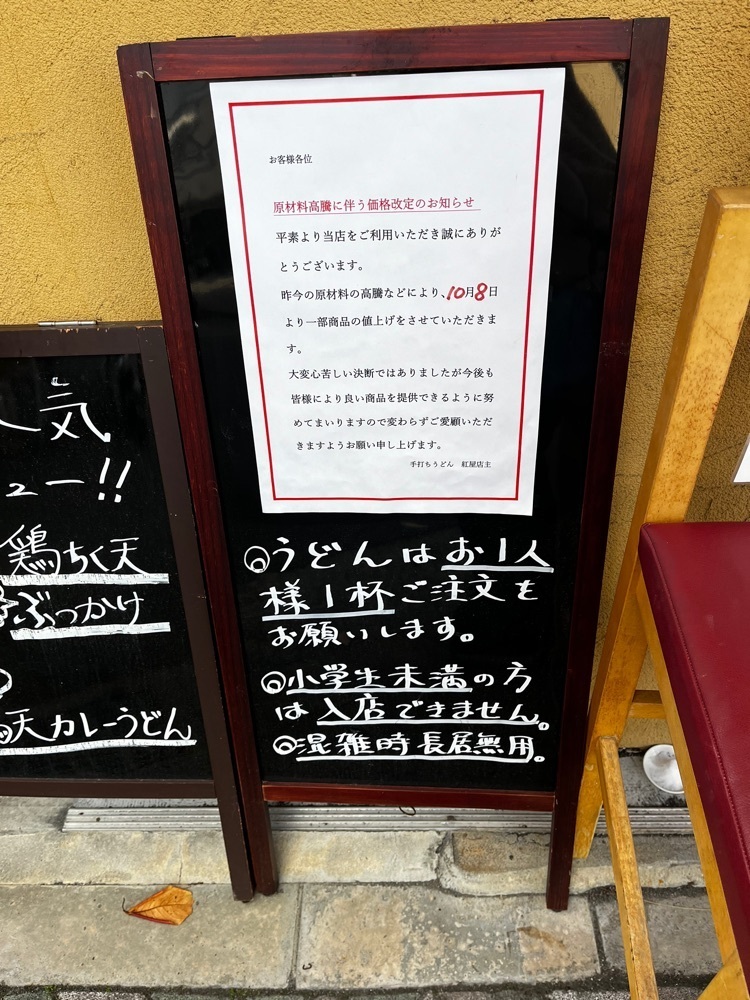 お客様各位
原材料高騰に伴う価格改定のお知らせ
平素より当店をご利用いただき誠にありが
とうございます。
昨今の原材料の高騰などにより、10月8日
より一部商品の値上げをさせていただきま
す。
大変心苦しい決断ではありましたが今後も
皆様により良い商品を提供できるように努
めてまいりますので変わらずご愛顧いただ
きますようお願い申し上げます。
手打ちうどん 紅屋店主
◎うどんはお1人
様1杯ご注文を
お願いします。
◎小学生未満の方
は入店できません。
◎混雑時長居無用。
気
ュー!!
鶏ちく天
ぶっかけ
天カレーうどん